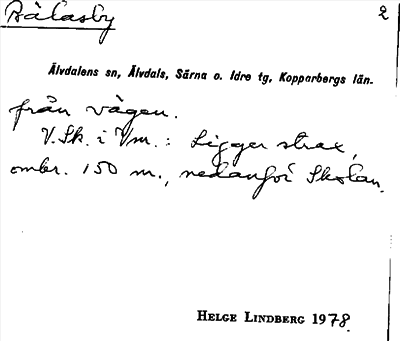 Bålasby 2
Älvdalens sn, Älvdals, Särna o. Idre tg, Kopparbergs län.
från vägen.
V.Sk. i Vm.: Ligger strax,
ombr. 150 m., nedanför Skolan.
HELGE LINDBERG 1978.